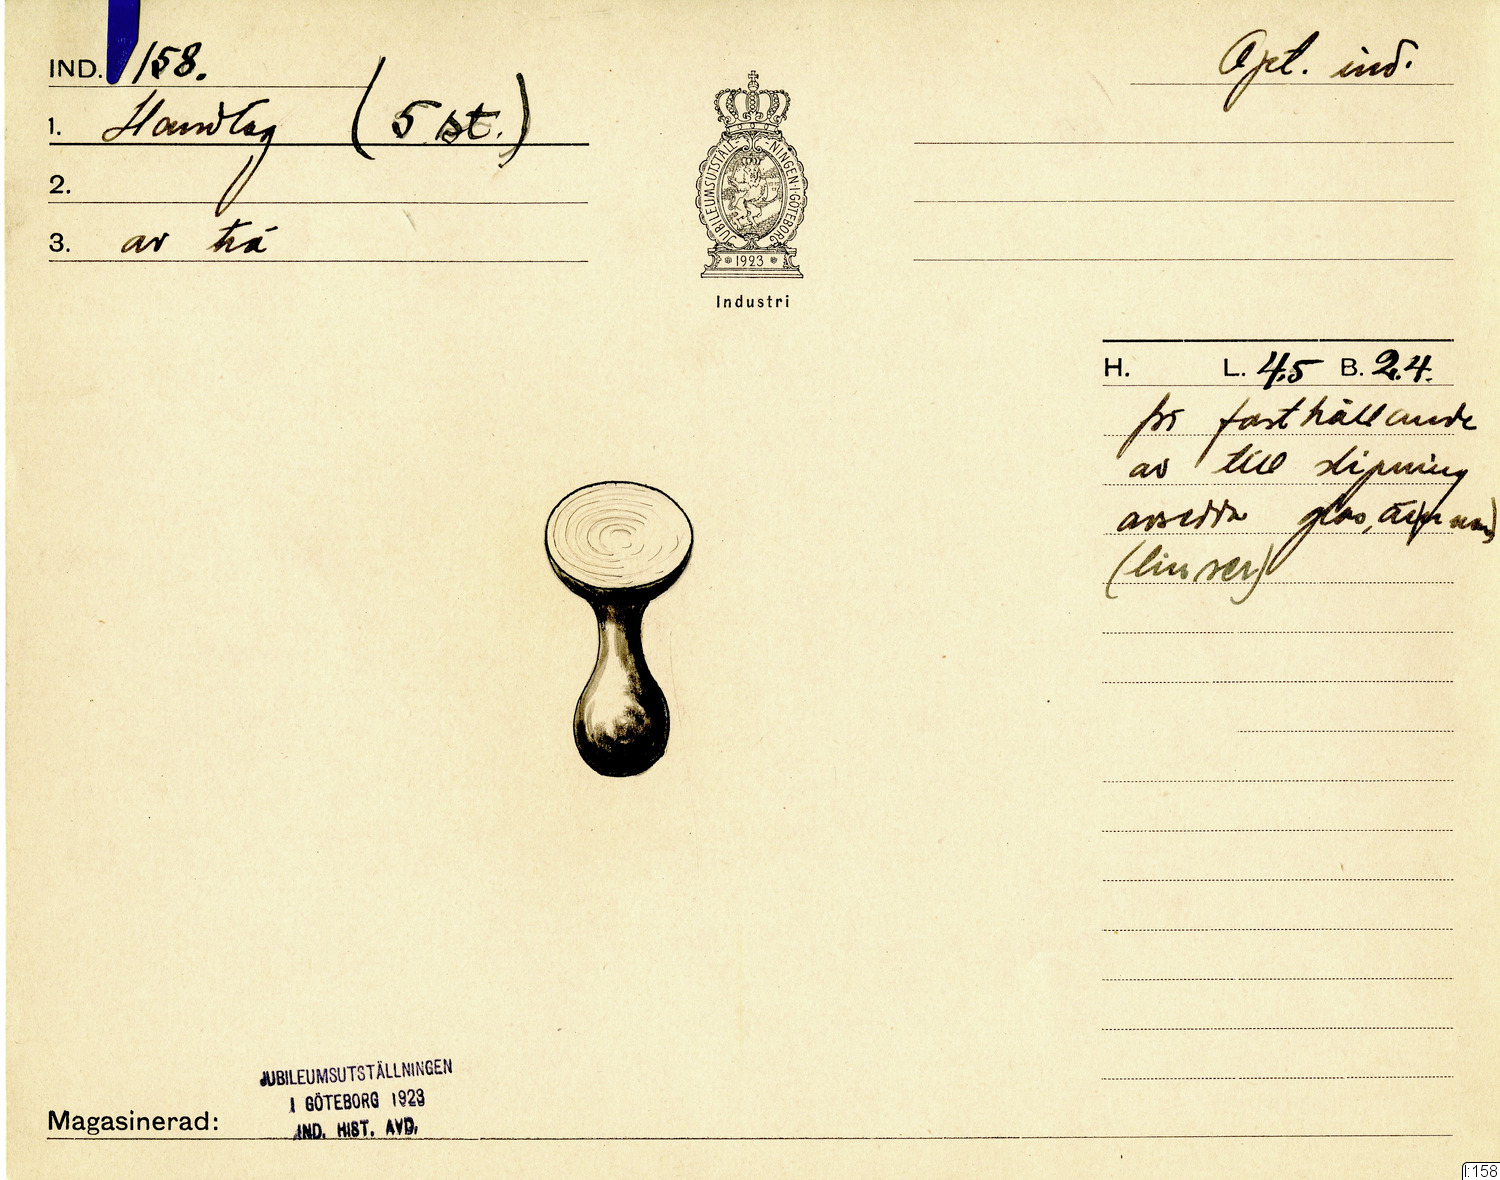 IND. 158.
1. Handtag (5 st.)
2.
3. av trä
Opt. ind.
JUBILEUMSUTSTÄLL-NINGEN·I·GÖTEBORG
1923
Industri
H. L. 4,5 B. 2.4.
för fasthållande
av till slipning
avsedda glas,
(linser)
JUBILEUMSUTSTÄLLNINGEN
I GÖTEBORG 1923
IND. HIST. AVD.
Magasinerad:
I:158